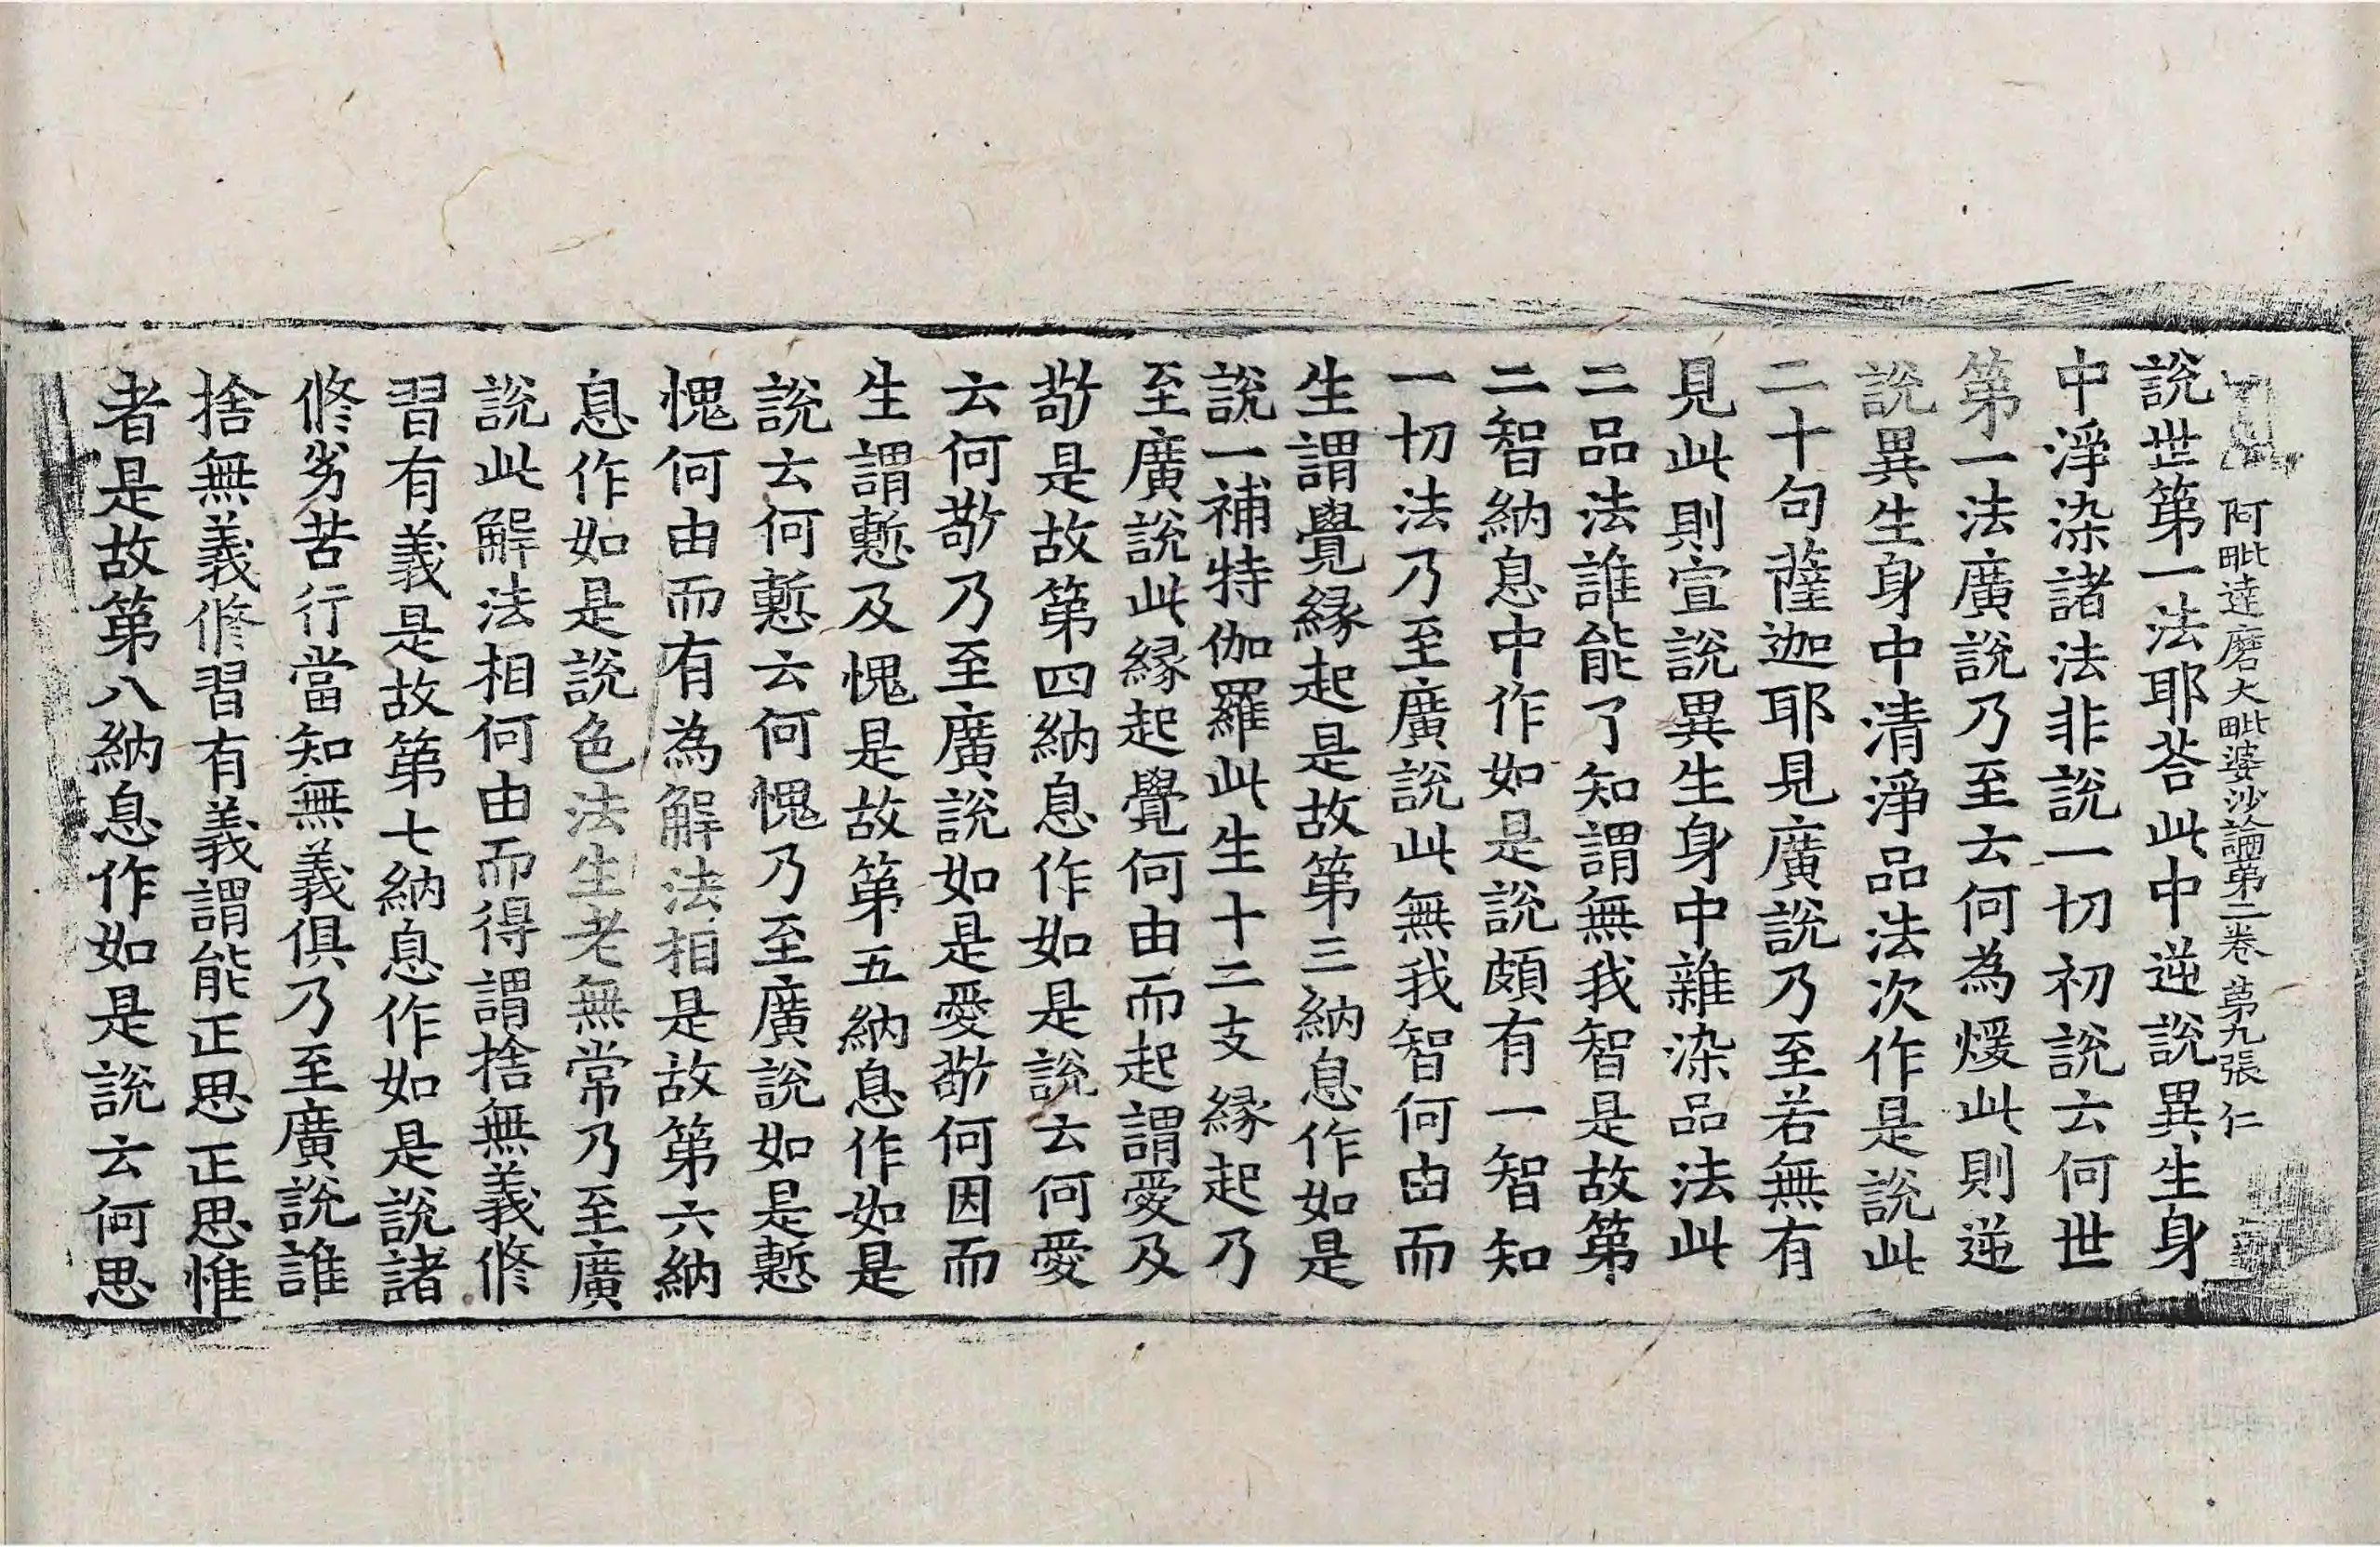 阿毗達磨大毗婆沙論第二卷 第九張 仁
說世第一法耶荅此中逆說異生身
中淨染諸法非說一切初說云何世
第一法廣說乃至云何為煖此則逆
說異生身中清淨品法次作是說此
二十句薩迦耶見廣說乃至若無有
見此則宣說異生身中雜染品法此
二品法誰能了知謂無我智是故第
二智納息中作如是說頗有一智知
一切法乃至廣說此無我智何由而
生謂覺緣起是故第三納息作如是
說一補特伽羅此生十二支緣起乃
至廣說此緣起覺何由而起謂愛及
敬是故第四納息作如是說云何愛
云何敬乃至廣說如是愛敬何因而
生謂慙及愧是故第五納息作如是
說云何慙云何愧乃至廣說如是慙
愧何由而有為解法相是故第六納
息作如是說色法生老無常乃至廣
說此解法相何由而得謂捨無義修
習有義是故第七納息作如是說諸
修劣苦行當知無義俱乃至廣說誰
捨無義修習有義謂能正思正思惟
者是故第八納息作如是說云何思